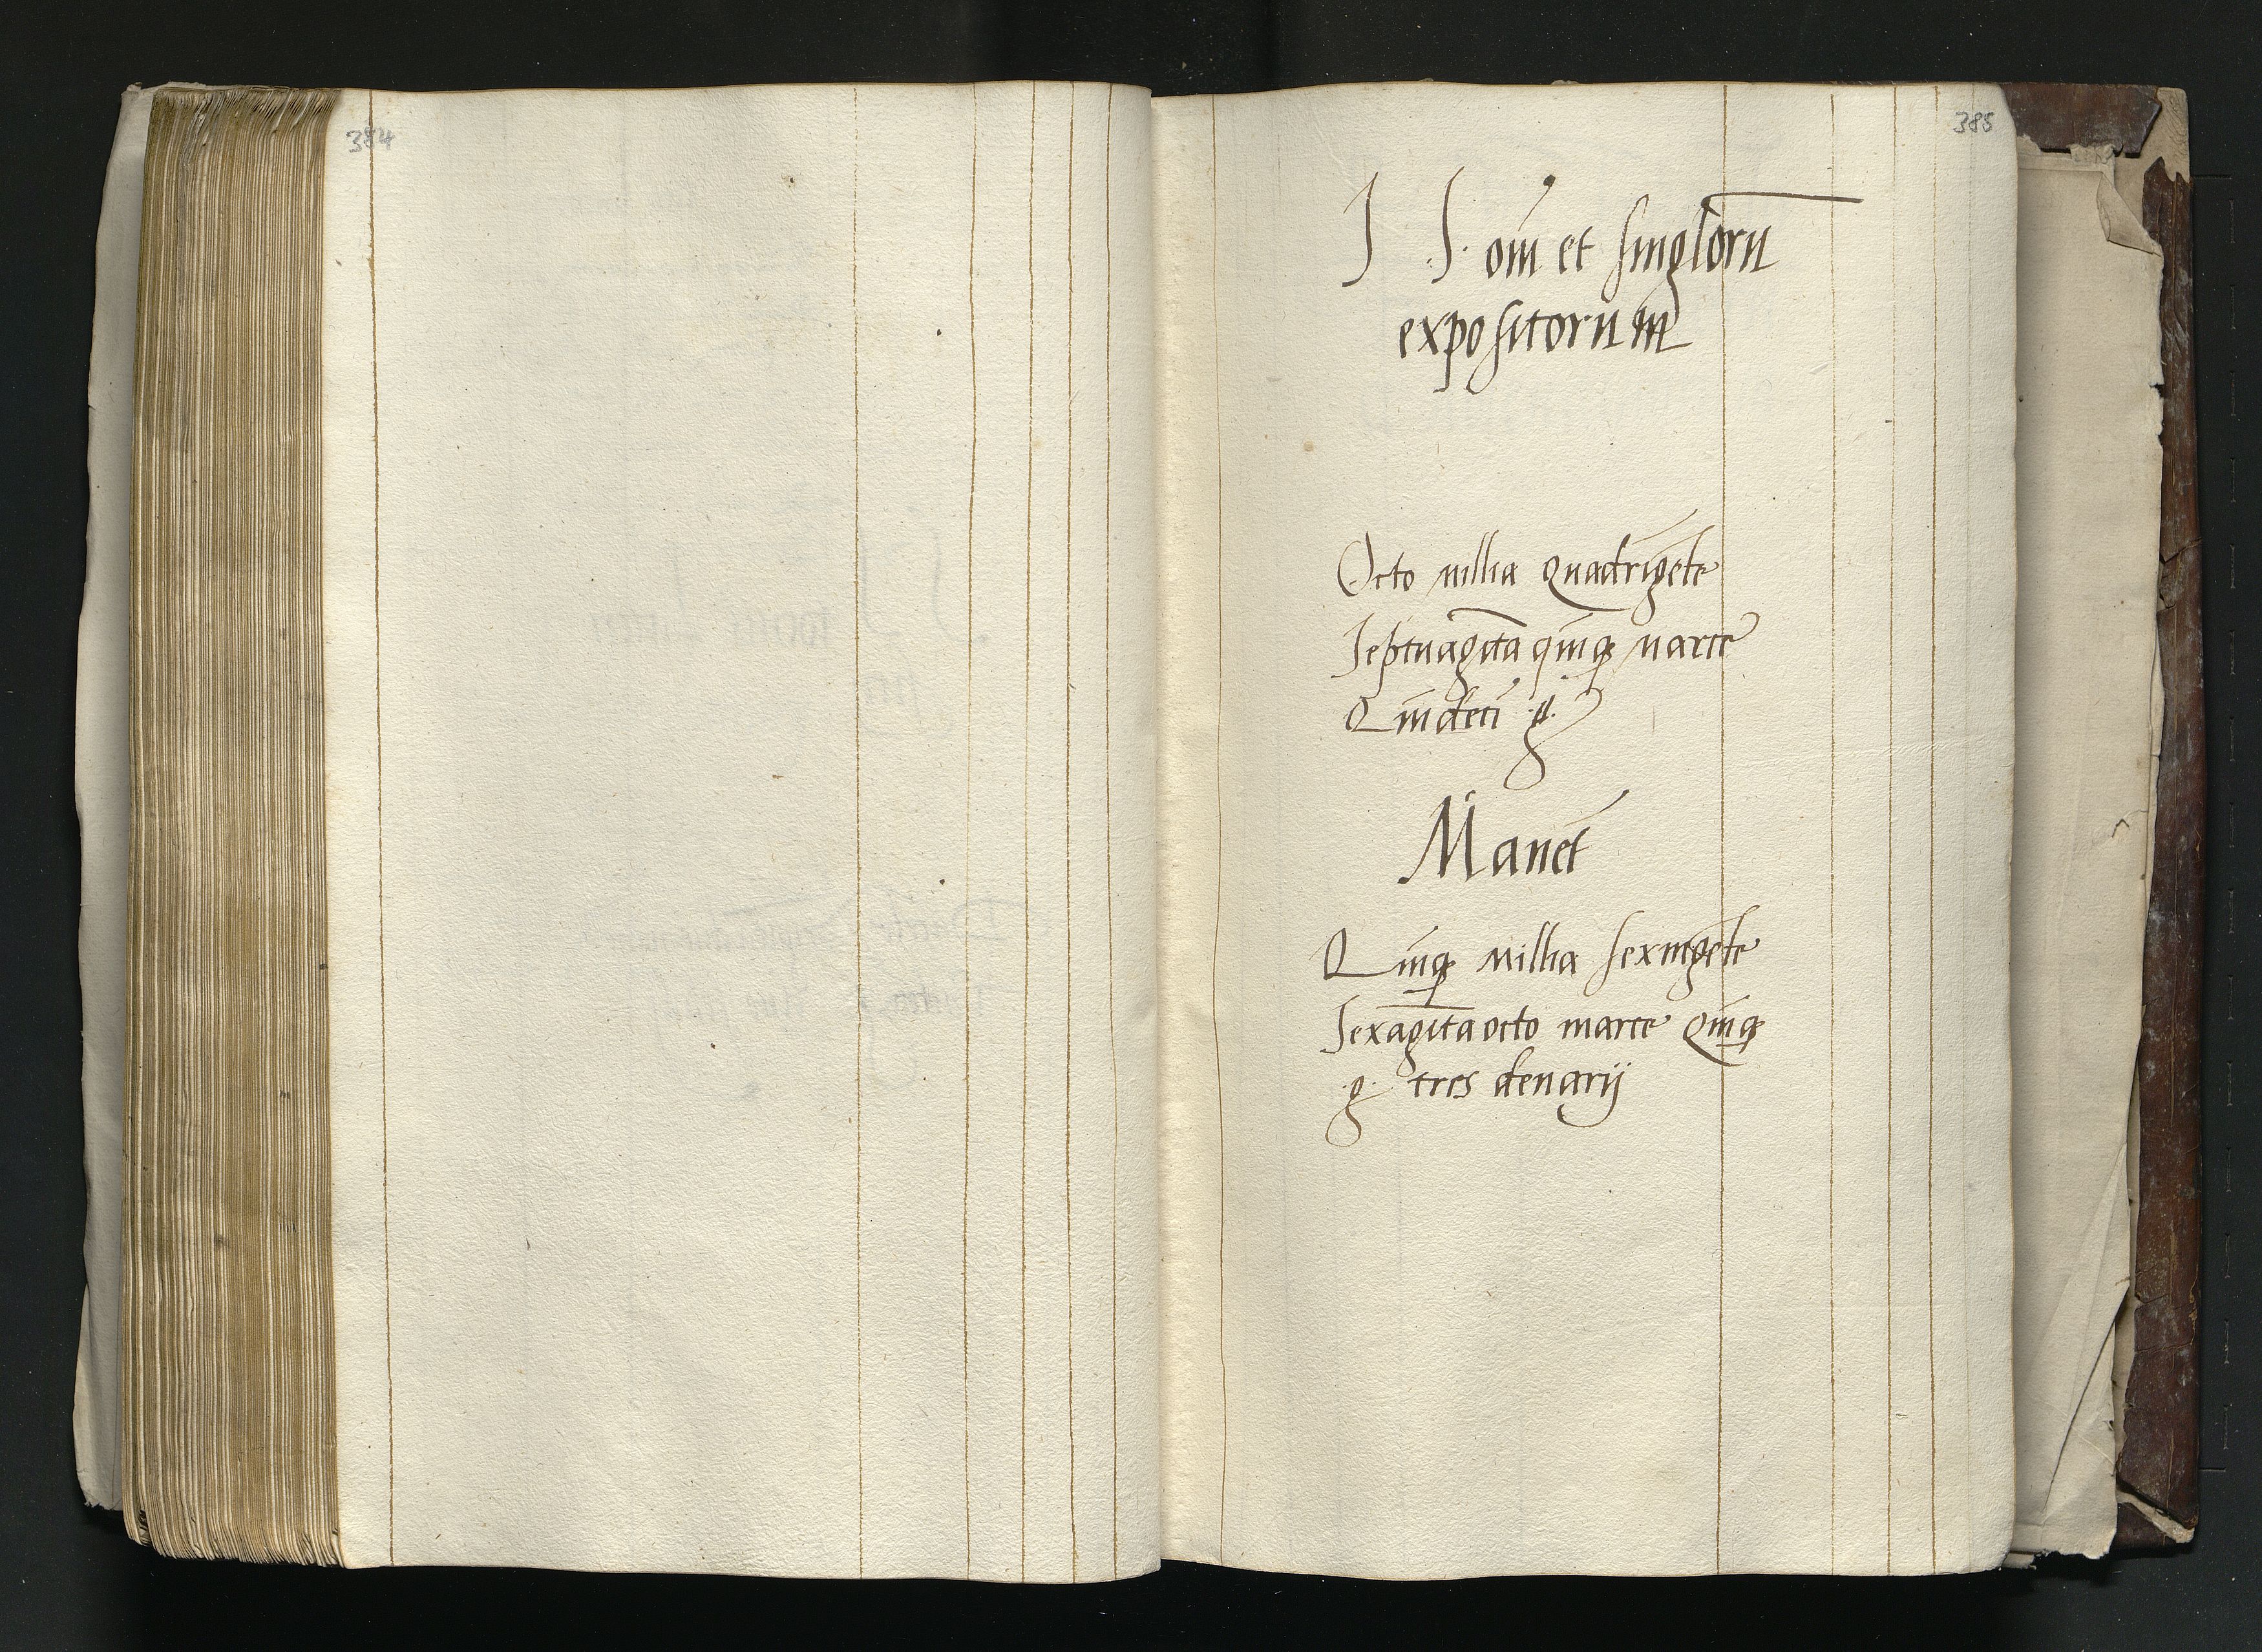 384
385
S S. oīm et singlorū
expositorum
Octo millia quadrigēte
Septuagīta quīq marce
Quīdeci g.
Manet
Quīq millia sexingēte
Sexagīta octo marce quīq
.g. tres denarij